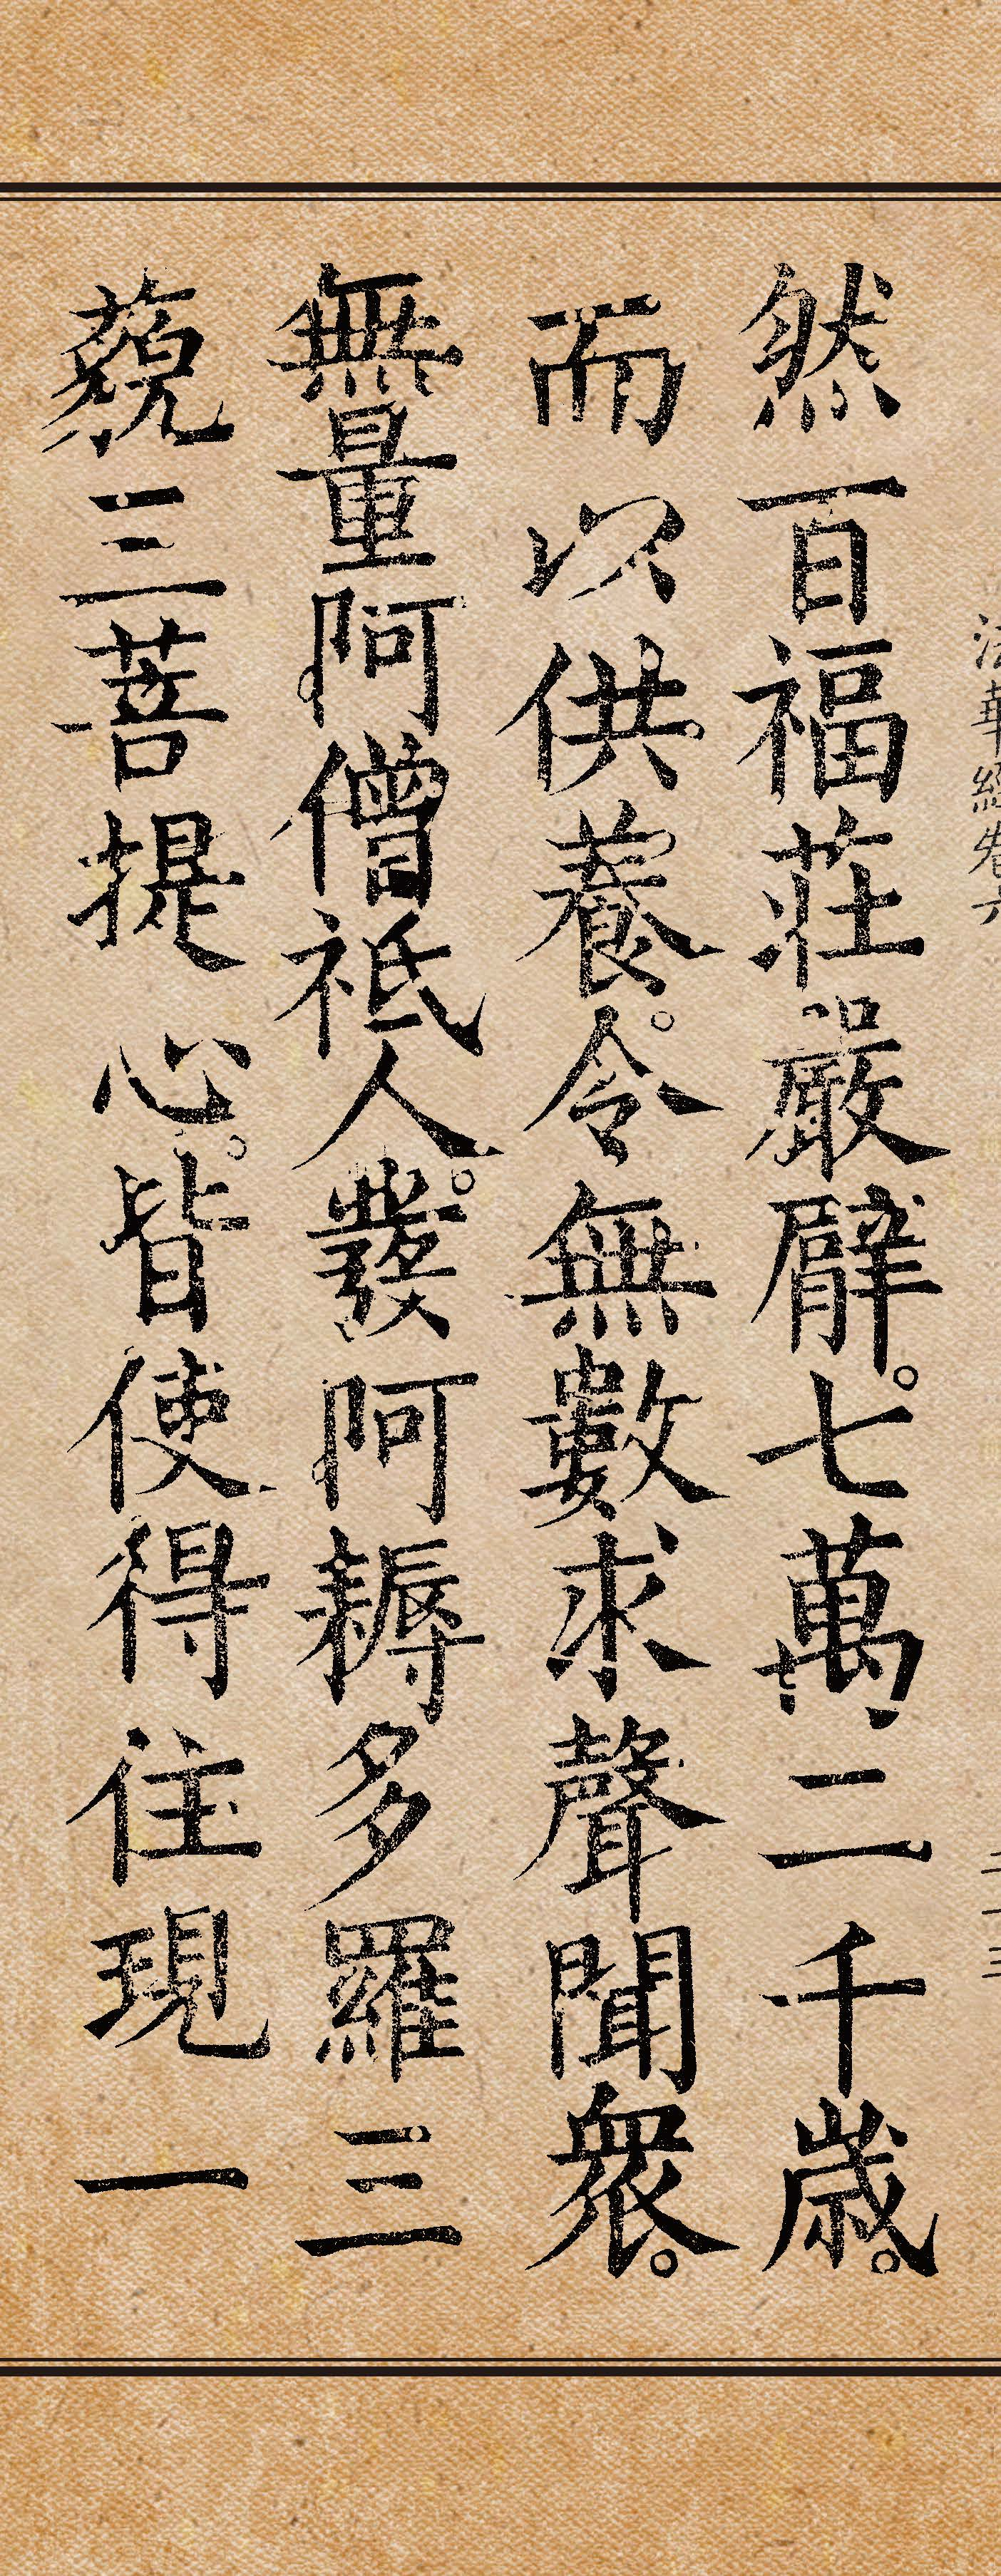 法華經卷六 二十三
然百福莊嚴臂。七萬二千歲。
而以供養。令無數求聲聞衆。
無量阿僧祇人。發阿耨多羅三
藐三菩提心。皆使得住現一